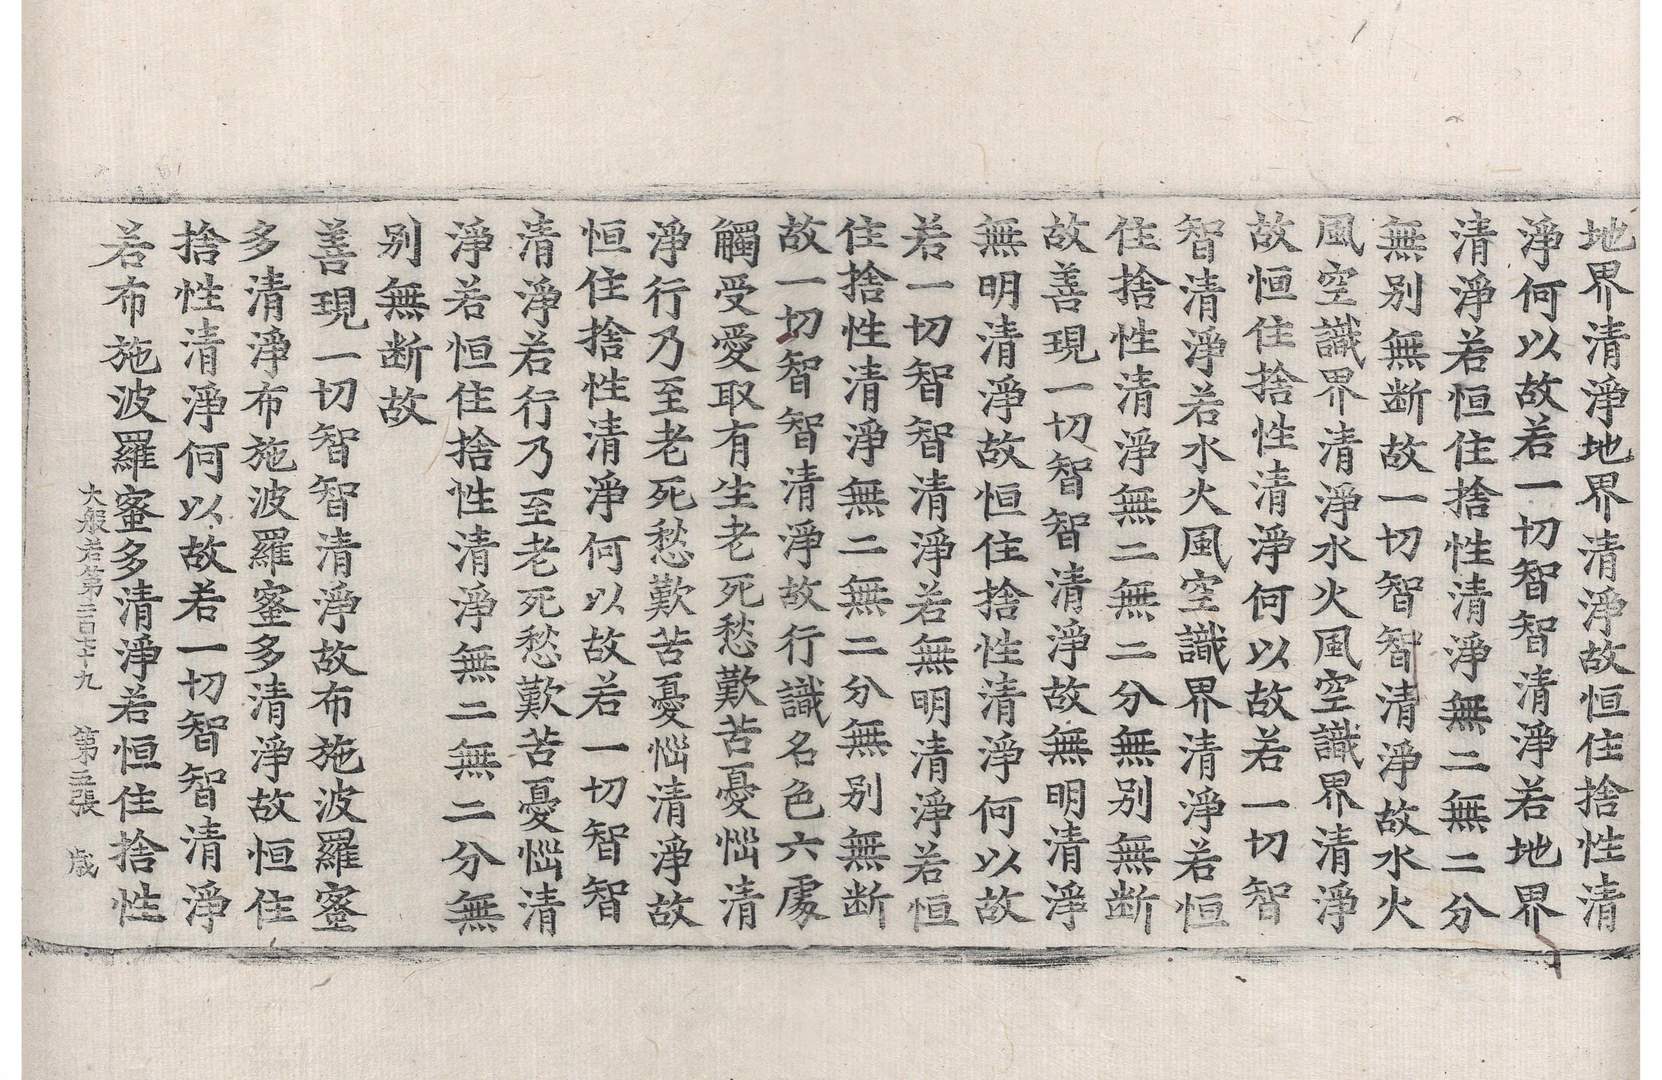 地界清淨地界清淨故恒住捨性清
淨何以故若一切智智清淨若地界
清淨若恒住捨性清淨無二無二分
無别無断故一切智智清淨故水火
風空識界清淨水火風空識界清淨
故恒住捨性清淨何以故若一切智
智清淨若水火風空識界清淨若恒
住捨性清淨無二無二分無别無断
故善現一切智智清淨故無明清淨
無明清淨故恒住捨性清淨何以故
若一切智智清淨若無明清淨若恒
住捨性清淨無二無二分無别無断
故一切智智清淨故行識名色六處
觸受愛取有生老死愁歎苦憂惱清
淨行乃至老死愁歎苦憂惱清淨故
恒住捨性清淨何以故若一切智智
清淨若行乃至老死愁歎苦憂惱清
淨若恒住捨性清淨無二無二分無
别無断故
善現一切智智清淨故布施波羅蜜
多清淨布施波羅蜜多清淨故恒住
捨性清淨何以故若一切智智清淨
若布施波羅蜜多清淨若恒住捨性
大般若第二百七十九 第五張 歲